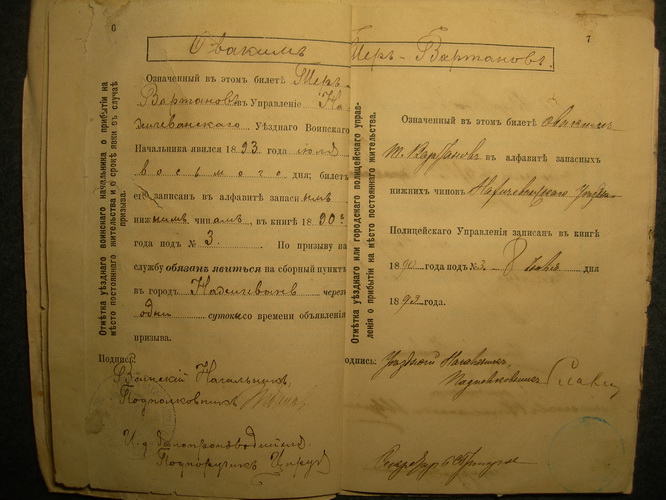 6
Овакимъ Теръ-Вартановъ.
Отмѣтка уѣзднаго воинскаго начальника о прибытіи на
мѣсто постояннаго жительства и о срокѣ явки въ случаѣ
призыва.
Означенный въ этомъ билетѣ Теръ-
Вартановъ въ Управленіе На-
хичеванскаго Уѣзднаго Воинскаго
Начальника явился 1893 года іюля
восьмого дня; билетъ
его записанъ въ алфавитѣ запаснымъ
нижнимъ чинамъ въ книгѣ 1890 г.
года подъ № 3. По призыву на
службу обязанъ явиться на сборный пунктъ
въ городъ Нахичевань черезъ
одни сутокъ со времени объявленія
призыва.
Подпись:
Воинскій Начальникъ,
Подполковникъ
И. д. Дѣлопроизводителя
Подпоручикъ
7
Отмѣтка уѣзднаго или городскаго полицейскаго управ-
ленія о прибытіи на мѣсто постояннаго жительства.
Означенный въ этомъ билетѣ Овакимъ
Т. Вартановъ въ алфавитѣ запасныхъ
нижнихъ чиновъ Нахичеванскаго Уѣздн.
Полицейскаго Управленія записанъ въ книгѣ
1890 года подъ № 3. 8 Іюля дня
1893 года.
одпись: Уѣздный Начальникъ
Подполковникъ
Секретарь